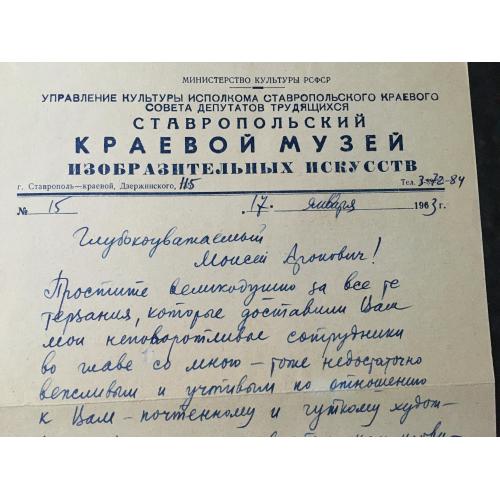 МИНИСТЕРСТВО КУЛЬТУРЫ РСФСР
УПРАВЛЕНИЕ КУЛЬТУРЫ ИСПОЛКОМА СТАВРОПОЛЬСКОГО КРАЕВОГО
СОВЕТА ДЕПУТАТОВ ТРУДЯЩИХСЯ
СТАВРОПОЛЬСКИЙ
КРАЕВОЙ МУЗЕЙ
ИЗОБРАЗИТЕЛЬНЫХ ИСКУССТВ
г. Ставрополь—краевой, Дзержинского, 115 Тел. 3-72-84
№ 15 „17„ января 1963 г.
Глубокоуважаемый
Моисей Аронович!
Простите великодушно за все те
терзания, которые доставили Вам
мои неповоротливые сотрудники
во главе со мною – тоже недостаточно
вежливым и учтивым по отношению
к Вам – почтенному и чуткому худож-